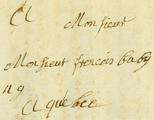 A Monsieur
Monsieur francois baby
n g
A quebec